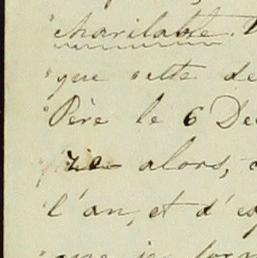 charitable.
que cette de
Père le 6 De
alors,
l'an, et d'
que je